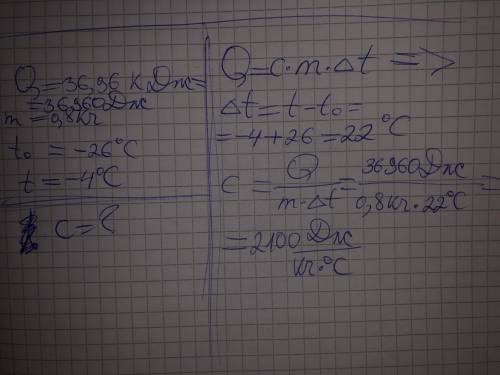 Q = 36,96 кДж =
= 36960 Дж
m = 0,8 кг
t₀ = -26°C
t = -4°C
c = ?
Q = c·m·Δt =>
Δt = t - t₀ =
= -4 + 26 = 22°C
c = Q/(m·Δt) = 36960 Дж/(0,8 кг·22°C) =
= 2100 Дж/(кг·°C)